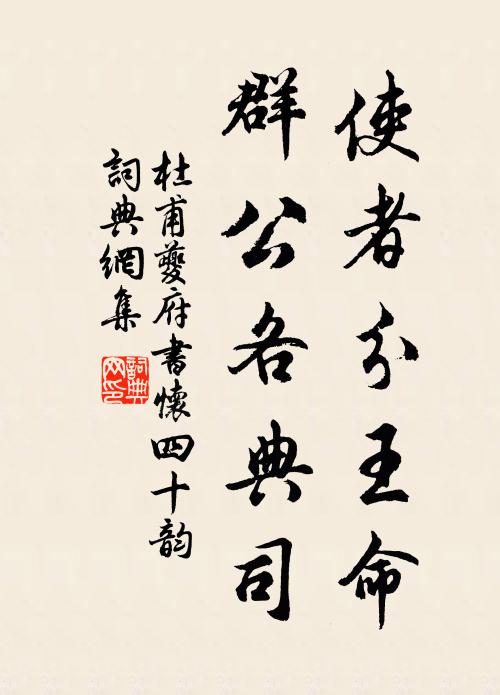 使者分王命
群公各典司
杜甫夔府書懷四十韵
詞典網集
詞典網印